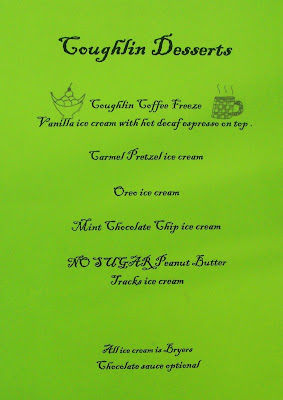 Coughlin Desserts
Coughlin Coffee Freeze
Vanilla ice cream with hot decaf espresso on top .
Carmel Pretzel ice cream
Oreo ice cream
Mint Chocolate Chip ice cream
NO SUGAR Peanut Butter
Tracks ice cream
All ice cream is Bryers
Chocolate sauce optional